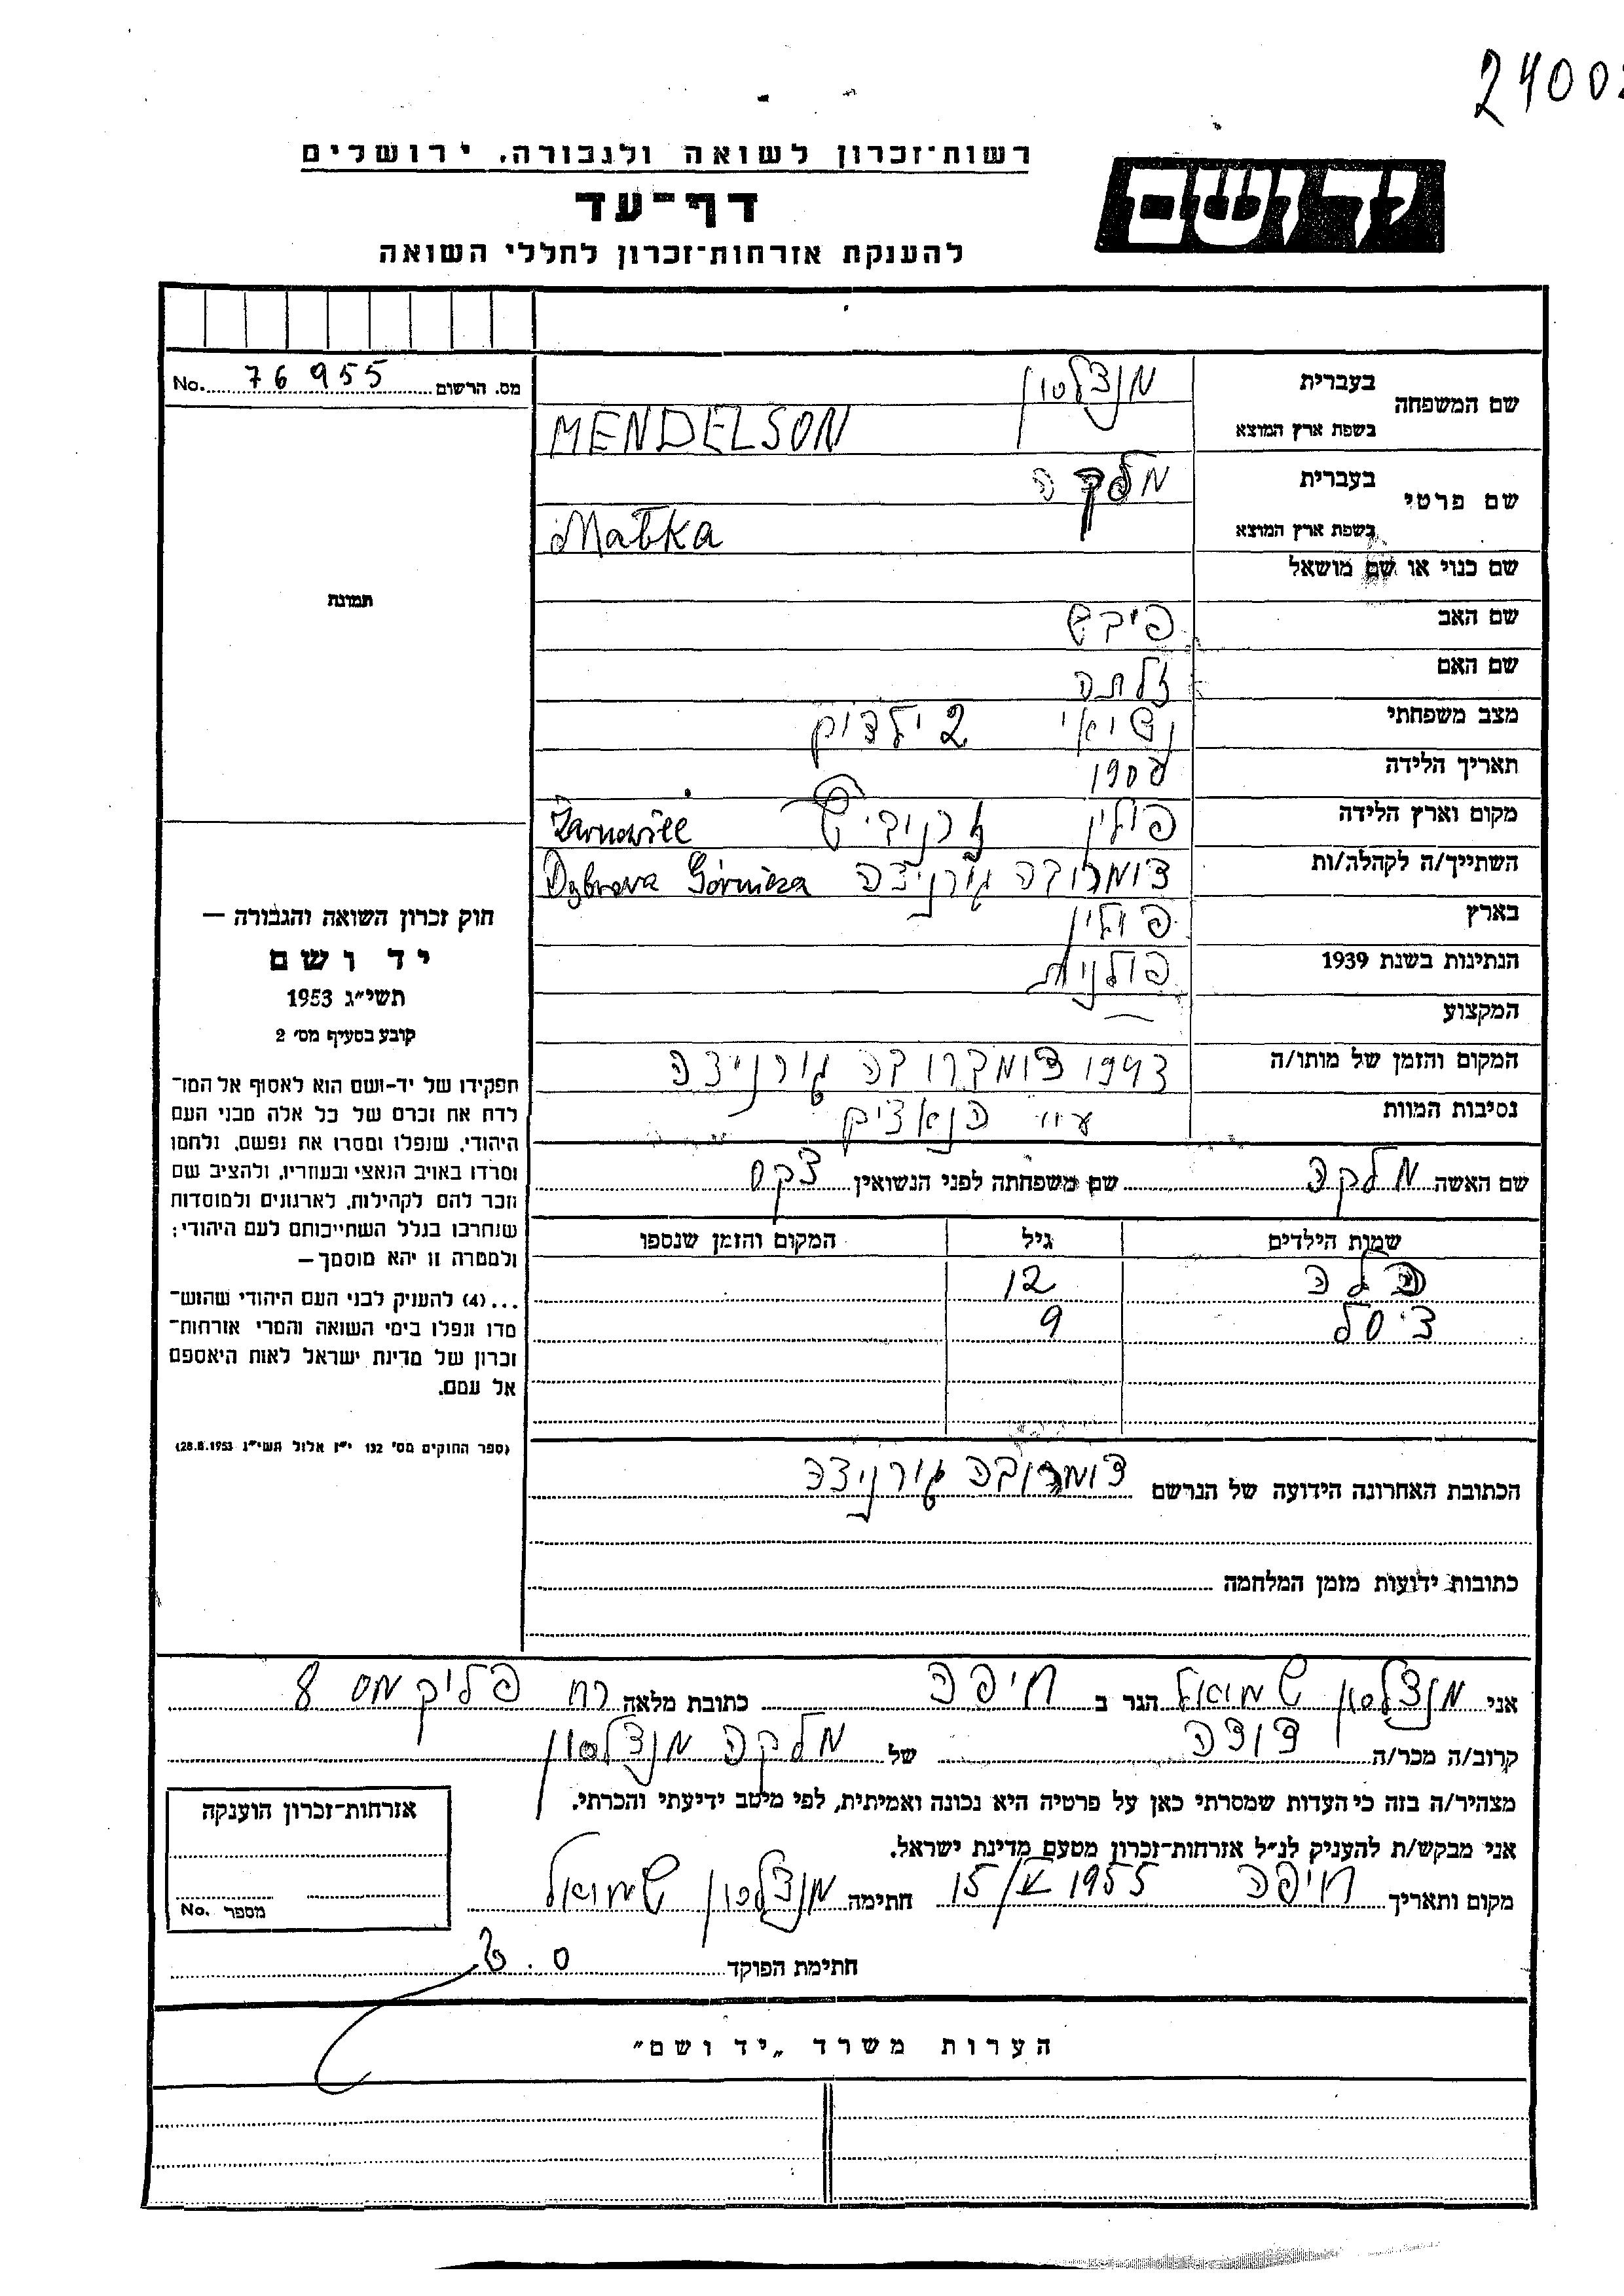 2400
רשות־זכרון לשואה ולגבורה, ירושלים
ידושם
דף־עד
להענקת אזרחות־זכרון לחללי השואה
מס. הרשום 76955 No.
שם המשפחה
בעברית מנדלסון
בשפת ארץ המוצא MENDELSON
שם פרטי
בעברית מלקה
בשפת ארץ המוצא Małka
שם כנוי או שם מושאל
שם האב פיבש
שם האם זלתה
מצב משפחתי נשיאי 2 ילדים
תאריך הלידה 1908
מקום וארץ הלידה פולין
השתייך/ה לקהלה/ות דומרובה גורניצה Górnicza
בארץ פולין
הנתינות בשנת 1939 פולנית
המקצוע —
המקום והזמן של מותו/ה 1943 דומברובה גורניצה
נסיבות המוות
שם האשה מלקה שם משפחתה לפני הנשואין
שמות הילדים גיל המקום והזמן שנספו
12
9
הכתובת האחרונה הידועה של הנרשם דומרובה גורניצה
כתובות ידועות מזמן המלחמה
תמונת
חוק זכרון השואה והגבורה —
יד ושם
תשי״ג 1953
קובע בסעיף מס׳ 2
תפקידו של יד-ושם הוא לאסוף אל המו־
לדת את זכרם של כל אלה מבני העם
היהודי, שנפלו ומסרו את נפשם, נלחמו
ומרדו באויב הנאצי ובעוזריו, ולהציב שם
וזכר להם לקהילות, לארגונים ולמוסדות
שנחרבו בגלל השתייכותם לעם היהודי;
ולמטרה זו יהא מוסמך —
...(4) להענק לבני העם היהודי שהוש־
מדו ונפלו בימי השואה והמרי אזרחות־
זכרון של מדינת ישראל לאות היאספם
אל עמם.
(ספר החוקים מס׳ 132 י״ז אלול תשי״ג 28.8.1953)
אני מנדלסון שמואל הגר ב חיפה כתובת מלאה 8
קרוב/ה מכר/ה דודה של מלקה מנדלסון
מצהיר/ה בזה כי העדות שמסרתי כאן על פרטיה היא נכונה ואמיתית, לפי מיטב ידיעתי והכרתי.
אני מבקש/ת להעניק לנ״ל אזרחות-זכרון מטעם מדינת ישראל.
מקום ותאריך חיפה 15/V 1955 חתימה מנדלסון שמואל
חתימת הפוקד
אזרחות-זכרון הוענקה
מספר No.
הערות משרד „יד ושם״